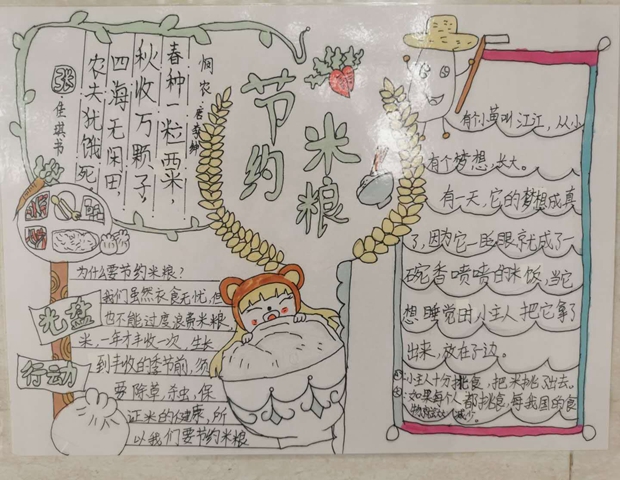 节约
米粮
悯农·唐·李绅
春种一粒西米,
秋收万颗子,
四海无闲田,
农夫犹饿死。
张佳琪书
光盘
行动
为什么要节约米粮?
我们虽然衣食无忧,但
也不能过度浪费米粮,
米,一年才丰收一次 生长
到丰收的季节前,须
要 除草,杀虫,保
证米的健康,所
以我们要节约米粮
有个小黄叫江江,从小
有个梦想,长大。
有一天,它的梦想成真
了,因为它一眨眼就成了一
碗香喷喷的米饭,当它
想睡觉时小主人把它拿了
出来,放在了边。
小主人十分挑食,把米挑了出去。
如果每个人都挑食,每我国的食